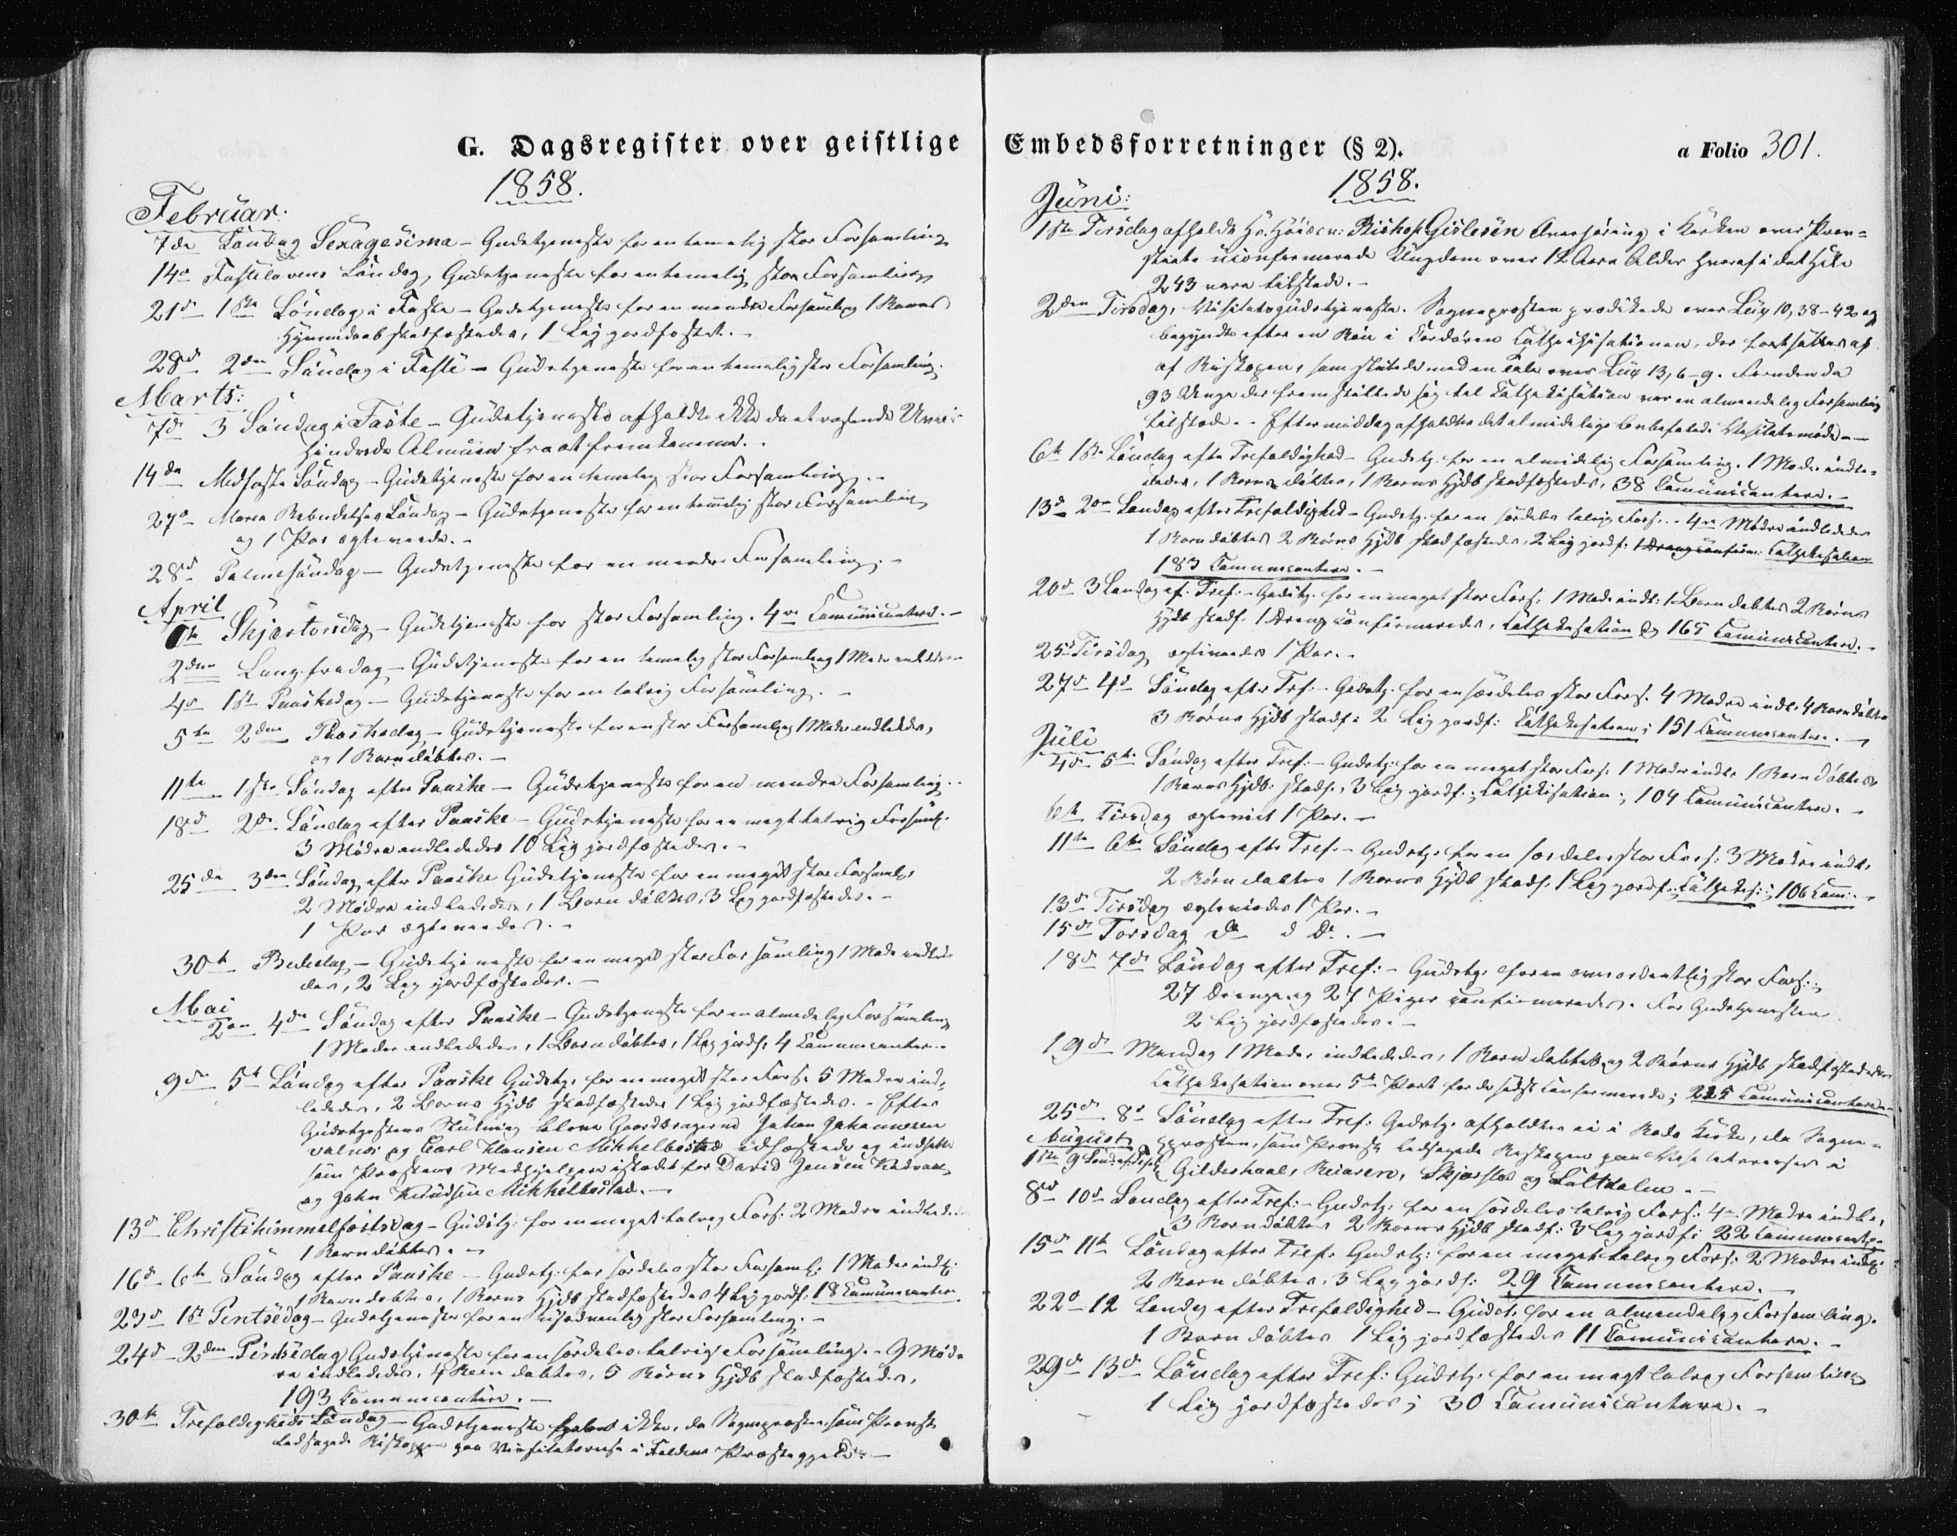 G. Dagsregister over geistlige
1858.
Februar:
7de Søndag Sexagesima – Gudstjeneste for en temelig stor Forsamling
14de Fastelavens Søndag, Gudstjeneste for en temelig stor Forsamling
21de 1ste Søndag i Faste – Gudstjeneste for en mendre Forsamling 1 Barns
Hjemmedaab stadfæstedes, 1 Lig jordfæstet. –
28de 2den Søndag i Faste – Gudstjeneste for en temelig stor Forsamling.
Marts:
7de 3 Søndag i Faste – Gudstjeneste afholdtes ikke da et rasende Uveir
hindrede Almuen fra at fremkomme. –
14de Midfaste Søndag – Gudstjeneste for en temelig stor Forsamling. –
27de Maria Bebudelses Søndag – Gudstjeneste for en temmelig stor Forsamling
og 1 Par ægteviede. –
28de Palmesøndag – Gudstjeneste for en mendre Forsamling. –
April
1ste Skjærtorsdag – Gudstjeneste for stor Forsamling. 4re Communicantere. –
2den Langfredag – Gudstjeneste for en temelig stor Forsamling 1 Moder indledes
4de 1ste Paaskedag – Gudstjeneste for en talrig Forsamling. –
5te 2den Paaskedag – Gudstjeneste for en stor Forsamling 1 Moder indledes,
og 1 Barn døbtes. –
11te 1ste Søndag efter Paaske – Gudstjeneste for en mendre Forsamling. –
18de 2den Søndag efter Paaske – Gudstjeneste for en meget talrig Forsaml.
3 Mødre indlededes 10 Lig jordfæstedes. –
25de 3die Søndag efter Paaske Gudstjeneste for en meget stor Forsaml.
2 Mødre indlededes, 1 Barn døbtes, 3 Lig jordfæstedes. –
1 Par ægteviedes. –
30te Bededag – Gudstjeneste for en meget stor Forsamling 1 Moder indled-
des, 2 Lig jordfæstedes. –
Mai
2den 4de Søndag efter Paaske – Gudstjeneste for en almindelig Forsamling
1 Moder indlededes, 1 Barn døbtes, 1 Lig jordf. 4 Communicanter. –
9de 5te Søndag efter Paaske Gudstj. for en meget stor Fors. 5 Mødre ind-
lededes, 2 Børns Hjdb stadfæstedes 1 Lig jordfæstedes. – Efter
Gudstjenestens Slutning bleve Gaardbrugerne Johan Johannesen
og Carl Hansen Mikkelbostad edfæstede og indsatte
som Præstens Medhjelpere istedet for David Jensen
og John Knudsen Mikkelbostad. –
13de Christihimmelfartsdag – Gudstj. for en meget talrig Fors. 2 Mødre indled.
1 Barn døbtes. –
16de 6te Søndag efter Paaske – Gudstj. for særdeles stor Forsaml. 1 Moder indl.
1 Barn døbtes, 1 Barns Hjdb stadfæstedes 4 Lig jordf. 18 Communicanter
23de 1ste Pintsedag – Gudstjeneste for en usædvanlig stor Forsamling. –
24de 2den Pintsedag Gudstjeneste for en særdeles talrig Forsamling. – 9 Mød-
re indlededes, 4 Børn døbtes, 5 Børns Hjdb stadfæstedes,
193 Communicantere. –
30te Trefoldigheds Søndag – Gudstjeneste ikke, da Sognepræsten som Provst
ledsagede Biskoppen paa Visitatsreise i Præstegjeld. –
Embedsforretninger (§ 2).
a Folio 301.
1858.
Juni:
1ste Tirsdag afholdt Hs. Høiærv. Biskop Gislesen Overhøring i Kirken over Præ-
stiets uconfirmerede Ungdom over 12 Aars Alder hvoraf i det Hele
243 vare tilstede. –
2den Tirsdag, Visitatsgudstjeneste. Sognepræsten prædikede over Luc 10,38–42 og
begyndte efter en Bøn i Kordøren Cathechisationen, der fortsattes af
af Biskopen, som sluttede med en Tale over Luc 13,6–9. Foruden de
93 Unge der fremstillede sig til Cathekisation var en almindelig Forsamling
tilstede. – Eftermiddag afholdtes det almindelige anbefalede Visitatsmøde. –
6te 1ste Søndag efter Trefoldighed – Gudstj. for en almindelig Forsamling. 1 Moder indle-
dedes, 1 Barn døbtes, 1 Barns Hjdb stadfæstedes, 38 Communicantere. –
13de 2den Søndag efter Trefoldighed – Gudstj. for en særdeles talrig Fors. – 4re Mødre indlededes
1 Barn døbtes 2 Børns Hjdb stadfæstedes, 2 Lig jordf. Cathekisation
183 Communicantere. –
20de 3 Søndag ef. Tref. – Gudstj. for en meget stor Fors: 1 Moder indl: 1 Barn døbtes 2 Børns
Hjdb stadf. 1 Dreng confirmeredes, Cathekisation og 165 Communicantere. –
25de Tirsdag ægteviedes 1 Par. –
27de 4de Søndag efter Trf. – Gudstj. for en særdeles stor Fors. 4 Mødre indl. 4 Børn døbtes
3 Børns Hjdb stadf: 2 Lig jordf: Cathekisation; 151 Communicantere. –
Juli
4de 5te Søndag efter Tref. – Gudstj. for en meget stor Fors. 1 Moder indl. 1 Barn døbtes
1 Barns Hjdb. stadf., 3 Lig jordf.; Cathekisation; 104 Communicantere. –
6te Tirsdag ægteviet 1 Par. –
11te 6te Søndag efter Tref. – Gudstj. for en særdeles stor Fors: 3 Mødre indl.
2 Børn døbtes 1 Barns Hjdb stadf. 1 Lig jordf. Cathekis: ; 106 Com: –
13de Tirsdag ægteviedes 1 Par. –
15de Torsdag do d do. –
18de 7de Søndag efter Tref: – Gudstj. for en overordentlig stor Fors:
27 Drenge og 27 Piger confirmeredes. Før Gudstjenesten
2 Lig jordfæstedes. –
19de Mandag 1 Moder indlededes, 1 Barn døbtes og 2 Børns Hjdb stadfæstedes
Cathekisation over 5te Part for de sidst confirmerede; 225 Communicantere –
25de 8de Søndag efter Tref: Gudstj. afholdtes ei i Rødø Kirke, da Sogne-
præsten, som Provst ledsagede Biskopen paa Visitatsreiser i
August
1ste 9 Søndag ef. Tref. Gildeskaal, Beiaren, Skjærstad og Saltdalen. –
8de 10de Søndag efter Tref: – Gudstj. for en særdeles talrig Fors: 4re Mødre indle.
3 Børn døbtes 2 Børns Hjdb stadf: 3 Lig jordf: 22 Communicante.
15de 11te Søndag efter Tref. Gudstj: for en meget talrig Fors: 2 Mødre indl.
2 Børn døbtes, 3 Lig jordf: 29 Communicantere. –
22de 12 Søndag efter Trefoldighed – Gudst. for en almindelig Forsamling.
1 Barn døbtes 1 Lig jordfæstedes 11 Communicantere. –
29de 13de Søndag efter Tref: Gudstj. for en meget talrig Forsamling
1 Lig jordfæstedes; 30 Communicantere. –